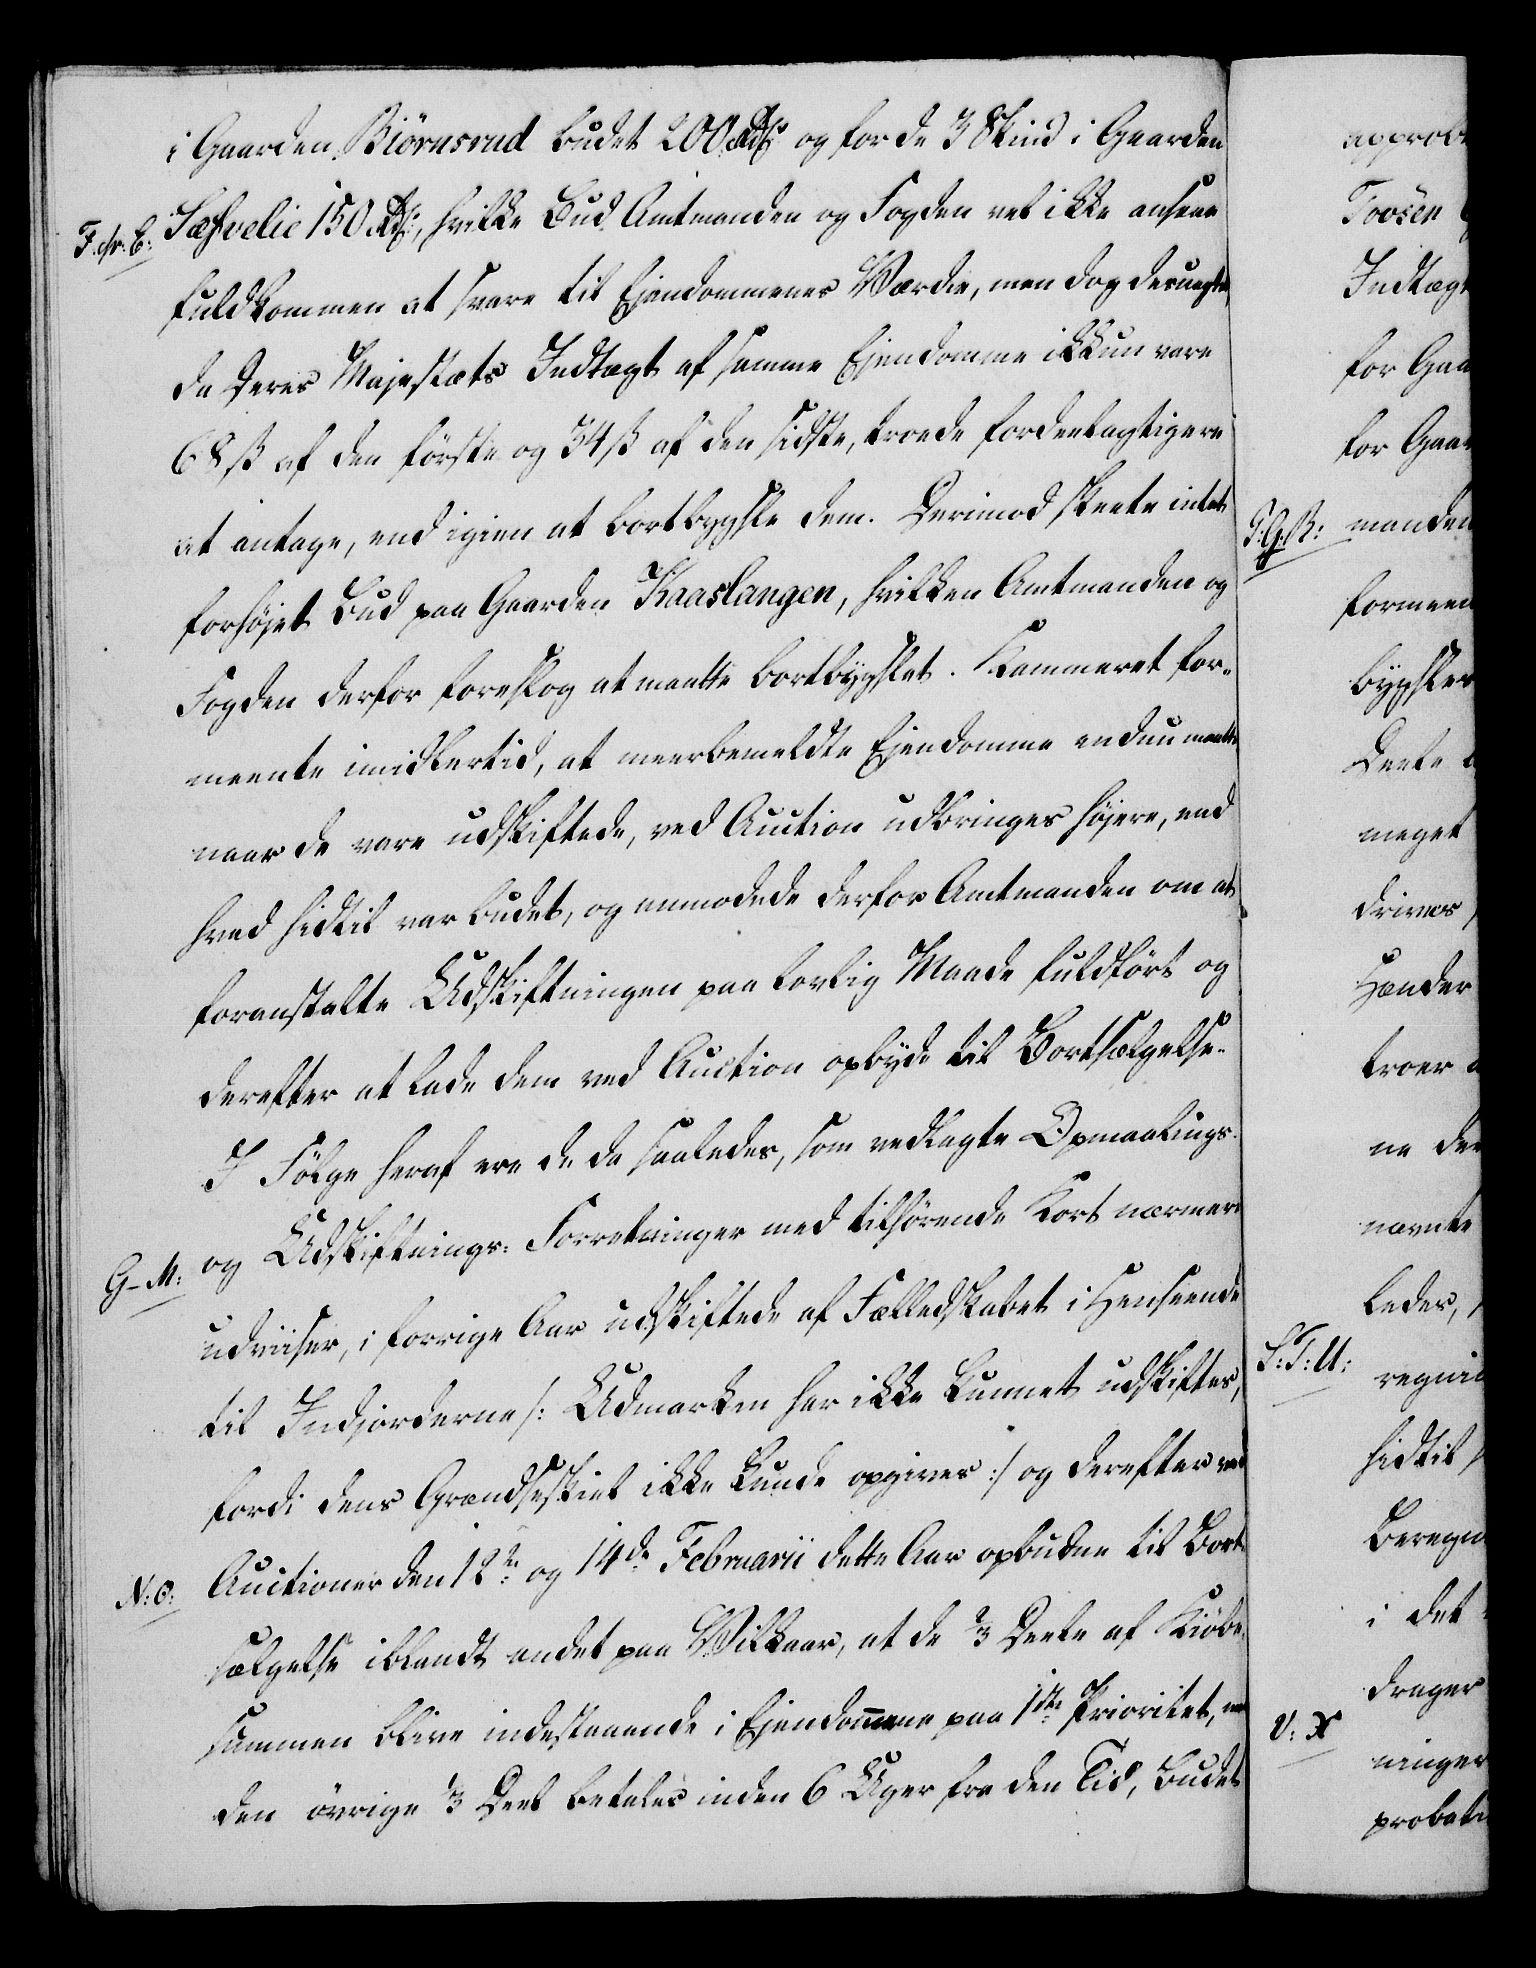 i Gaarden Biörnsrud budet 200 Rdlr og for de 3 Skind i Gaarden
Sæhvelie 150 Rdlr, hvilke Bud Amtmanden og Fogden vel ikke ansaae
F. & E:
fuldkommen at svare til Ejendommenes Værdie, men dog desuagtet,
da Deres Majestæts Indtægt af samme Ejendomme ikkun vare
68 ß af den første og 34 ß af den sidste, troede fordeelagtigere
at antage, end igien at bortbygsle dem. Derimod skeete intet
forhøjet Bud paa Gaarden Kaaslangen, hvilken Amtmanden og
Fogden derfor foreslog at maatte bortbygslet. Kammeret for-
meente imidlertid, at meerbemeldte Ejendomme endnu maatte
naar de vare udskiftede, ved Auction udbringes højere, end
hvad hidtil var budet, og anmodede derfor Amtmanden om at
foranstalte Udskiftningen paa lovlig Maade fuldført og
derefter at lade dem ved Auction opbyde til Bortsælgelse.
I Følge heraf ere de da saaledes, som vedlagte Opmaalings-
og Udskiftnings- Forretninger med tilhørende Kort nærmere
G-M:
udviiser, i forrige Aar udskiftede af Fælledskabet i Henseende
til Indjorderne /: Udmarken har ikke kunnet udskiftes,
fordi dens Grændseskiel ikke kunde opgives :/ og derefter ved
Auctioner den 12te og 14de Februarii dette Aar opbudne til Bort-
N:O:
sælgelse iblandt andet paa Vilkaar, at de 2/3 Deele af Kiøbe-
summen blive indestaaende i Ejendommene paa 1ste Prioritet, men
den øvrige 1/3 Deel betales inden 6 Uger fra den Tid, Budet
Toosen
Indtægt
for Gaa
for Gaar
P:Q:R:
manden
formeen
bygsler
Deele
meget
drives
Hænder
troer
ne
nævnte
ledes,
S:T:U:
hidtil
i det
drager
V: X
ninger